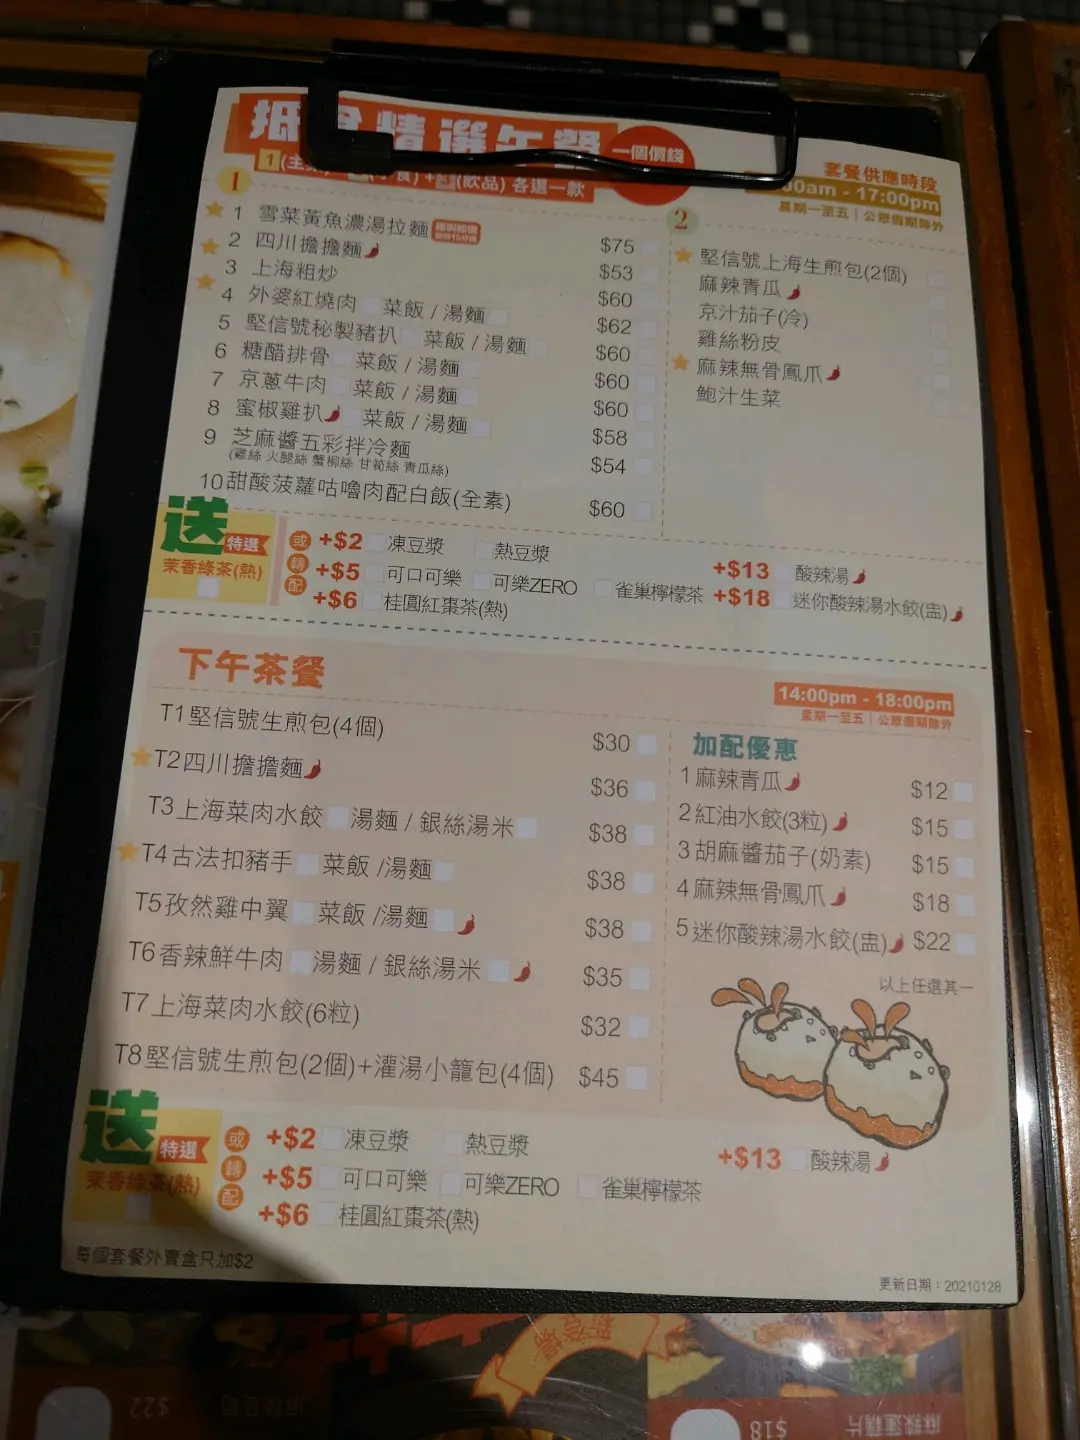 抵食精選午餐 一個價錢
1(主 食) + (飲品) 各選一款
套餐供應時段
00am - 17:00pm
星期一至五 | 公眾假期除外
1
1 雪菜黃魚濃湯拉麵 $75
2 四川擔擔麵 $53
3 上海粗炒 $60
4 外婆紅燒肉 菜飯 / 湯麵 $62
5 堅信號秘製豬扒 菜飯 / 湯麵 $60
6 糖醋排骨 菜飯 / 湯麵 $60
7 京蔥牛肉 菜飯 / 湯麵 $60
8 蜜椒雞扒 菜飯 / 湯麵 $58
9 芝麻醬五彩拌冷麵 $54
(雞絲 火腿絲 蟹柳絲 甘筍絲 青瓜絲)
10 甜酸菠蘿咕嚕肉配白飯(全素) $60
2
堅信號上海生煎包(2個)
麻辣青瓜
京汁茄子(冷)
雞絲粉皮
麻辣無骨鳳爪
鮑汁生菜
送 特選
茉香綠茶(熱)
或轉配
+$2 凍豆漿 熱豆漿
+$5 可口可樂 可樂ZERO 雀巢檸檬茶
+$6 桂圓紅棗茶(熱)
+$13 酸辣湯
+$18 迷你酸辣湯水餃(盅)
下午茶餐
14:00pm - 18:00pm
星期一至五 | 公眾假期除外
T1堅信號生煎包(4個) $30
T2四川擔擔麵 $36
T3上海菜肉水餃 湯麵 / 銀絲湯米 $38
T4古法扣豬手 菜飯 /湯麵 $38
T5孜然雞中翼 菜飯 /湯麵 $38
T6香辣鮮牛肉 湯麵 / 銀絲湯米 $35
T7上海菜肉水餃(6粒) $32
T8堅信號生煎包(2個)+灌湯小籠包(4個) $45
加配優惠
1 麻辣青瓜 $12
2 紅油水餃(3粒) $15
3 胡麻醬茄子(奶素) $15
4 麻辣無骨鳳爪 $18
5 迷你酸辣湯水餃(盅) $22
以上任選其一
送 特選
茉香綠茶(熱)
或轉配
+$2 凍豆漿 熱豆漿
+$5 可口可樂 可樂ZERO 雀巢檸檬茶
+$6 桂圓紅棗茶(熱)
+$13 酸辣湯
每個套餐外賣盒只加$2
更新日期：20210128
$22
$18
麻辣蓮藕片